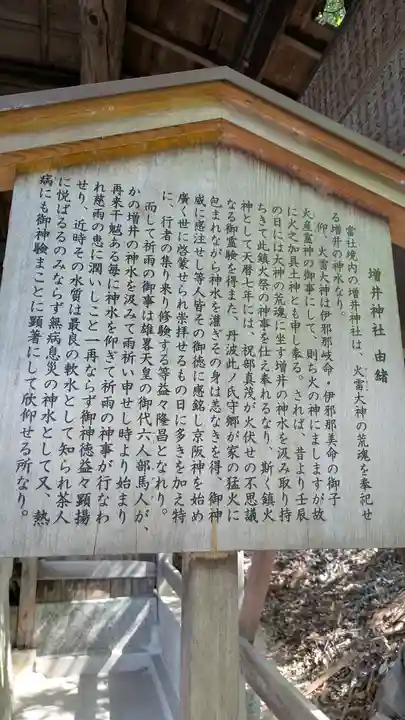 増井神社 由緒
当社境内の増井神社は、火雷大神の荒魂を奉祀せ
る増井の神水なり。
仰、火雷大神は伊邪那岐命・伊邪那美命の御子
火産霊神の御事にして、則ち火の神にましますが故
に火之加具土神とも申し奉る。されば、昔より壬辰
の日には大神の荒魂に坐す増井の神水を汲み取り持
ちきて此鎮火祭の神事を仕え奉れるなり、斯く鎮火
神として天暦七年には、祝部真茂が火伏せの不思議
なる御霊験を得また、丹波此ノ氏守郷が家の猛火に
包まれながら神水を灌ぎその身は恙なきを得、御神
威に感泣せし等人皆その御徳に感銘し京阪神を始め
廣く世に啓蒙せられ崇拝せるもの日に多きを加え特
に、行者の集り来り修験する等益々隆昌となれり。
而して祈雨の御事は雄畧天皇の御代六人部馬人が、
かの増井の神水を汲みて雨祈い申せし時より始まり
再来干魃ある毎に神水を仰ぎて祈雨の神事が行なわ
れ慈雨の恵に潤いしこと一再ならず御神徳益々顕揚
せり、近時その水質は最良の軟水として知られ茶人
に悦ばるるのみならず無病息災の神水として又、熱
病にも御神験まことに顕著にして欣仰せる所なり。